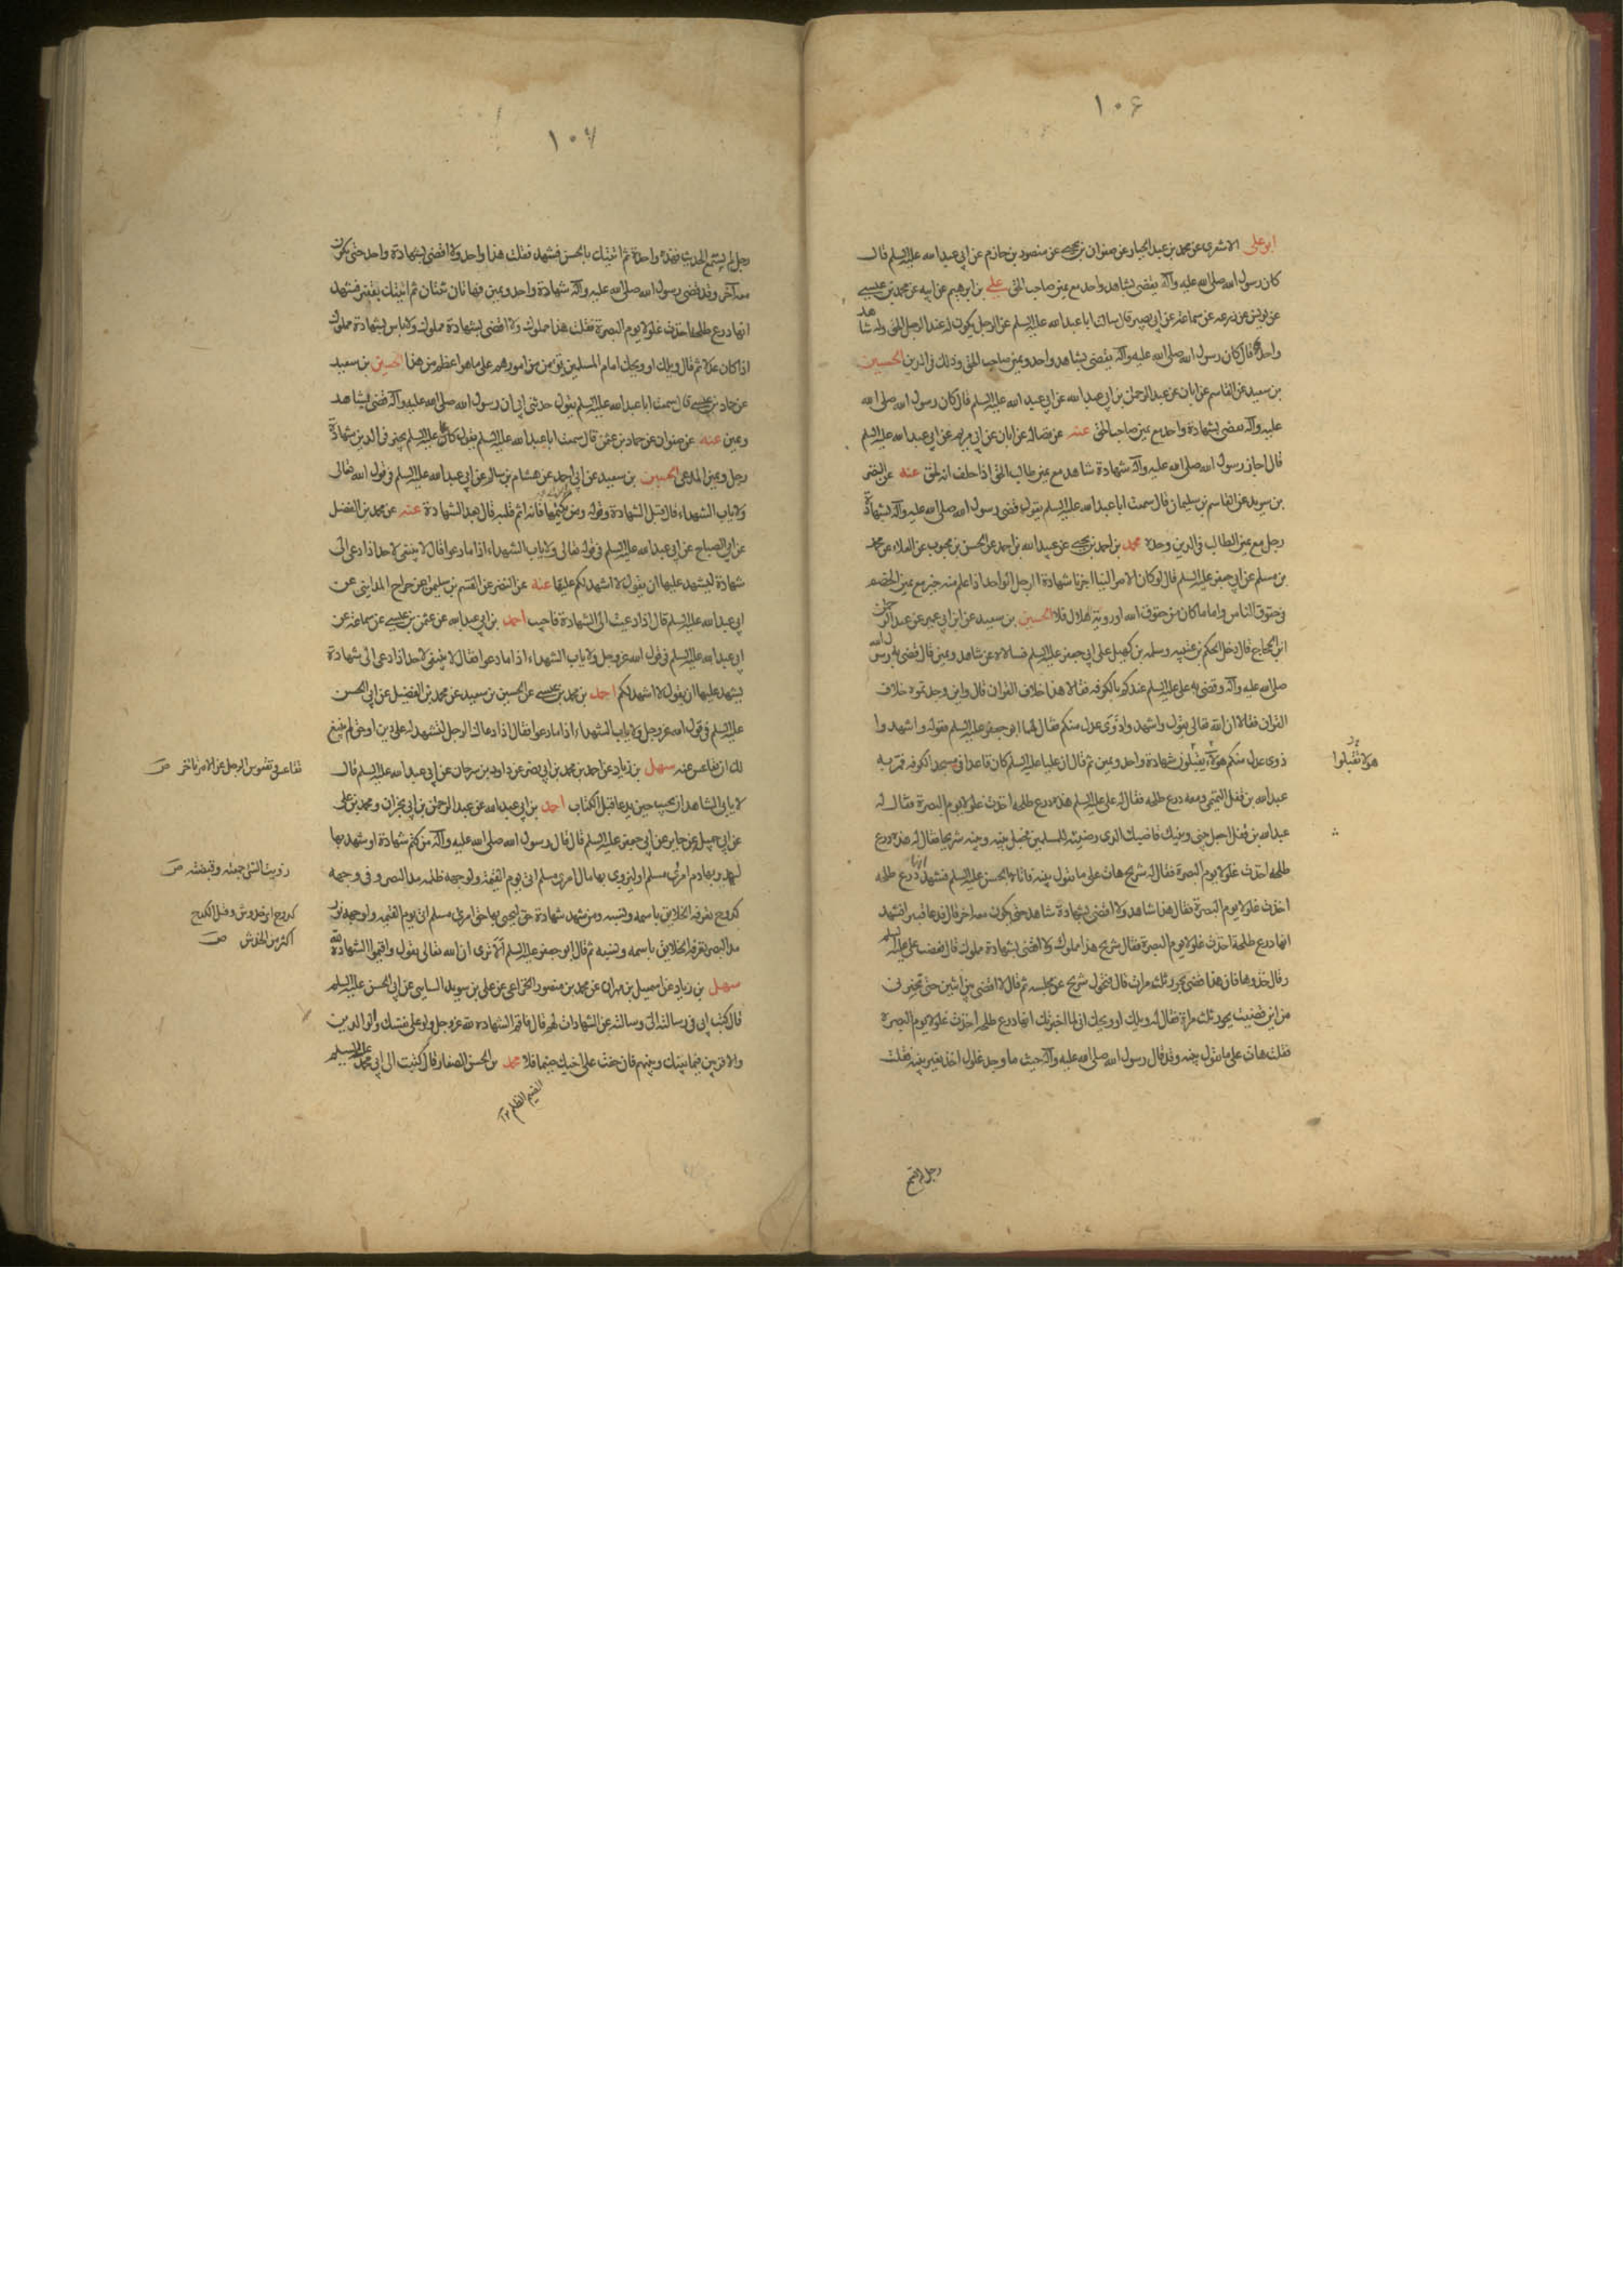 ١٠۶
ابو علي الاشعري عن محمد بن عبد الجبار عن صفوان بن يحيى عن منصور بن حازم عن ابي عبد الله عليه السلم قال
كان رسول الله صلى الله عليه وآله يقضي بشاهد واحد مع يمين صاحب الحق علي بن ابرهيم عن ابيه عن محمد بن عيسى
عن يونس عن زرعه عن سماعة عن ابي بصير قال سالت ابا عبد الله عليه السلم عن الرجل يكون له عند الرجل الحق وله شاهد
واحد قال كان رسول الله صلى الله عليه وآله يقضي بشاهد واحد ويمين صاحب الحق وذلك في الدين الحسين
بن سعيد عن القاسم عن ابان عن عبد الرحمن بن ابي عبد الله عن ابي عبد الله عليه السلم قال كان رسول الله صلى الله
عليه وآله يقضي بشهادة واحد مع يمين صاحب الحق عنه عن فضالة عن ابان عن ابي مريم عن ابي عبد الله عليه السلم
قال اجاز رسول الله صلى الله عليه وآله شهادة شاهد مع يمين طالب الحق اذا حلف انه لحق عنه عن النضر
بن سويد عن القاسم بن سليمان قال سمعت ابا عبد الله عليه السلم يقول قضى رسول الله صلى الله عليه وآله بشهادة
رجل مع يمين الطالب في الدين وحده محمد بن احمد بن يحيى عن عبد الله بن احمد عن الحسن بن محبوب عن العلاء عن محمد
بن مسلم عن ابي جعفر عليه السلم قال لو كان الامر الينا اجزنا شهادة الرجل الواحد اذا علم منه خير مع يمين الخصم
في حقوق الناس واما ما كان من حقوق الله او روية هلال فلا الحسين بن سعيد عن ابن ابي عمير عن عبد الرحمن
ابن الحجاج قال دخل الحكم بن عتيبه وسلمه بن كهيل على ابي جعفر عليه السلم فسالاه عن شاهد ويمين قال قضى به رسول الله
صلى الله عليه وآله وقضى به علي عليه السلم عندكم بالكوفه فقالا هذا خلاف القران قال واين وجدتموه خلاف
القران فقالا ان الله تعالى يقول واشهدوا ذوي عدل منكم فقال لهما ابو جعفر عليه السلم فقوله واشهدوا
ذوي عدل منكم هو لا تقبلوا شهادة واحد ويمين ثم قال ان عليا عليه السلم كان قاعدا في مسجد الكوفه فمر به
هو لا تقبلوا
عبد الله بن قفل التيمي ومعه درع طلحه فقال له علي عليه السلم هذه درع طلحه اخذت غلولا يوم البصرة فقال له
عبد الله بن قفل اجعل بيني وبينك قاضيك الذي رضيته للمسلمين فجعل بينه وبينه شريحا فقال له هذه درع
طلحه اخذت غلولا يوم البصرة فقال له شريح هات على ما تقول بينه فاتاه بالحسن عليه السلم فشهد انها درع طلحه
اخذت غلولا يوم البصرة فقال هذا شاهد ولا اقضي بشهادة شاهد حتى يكون معه اخر قال فدعا قنبر افشهد
انها درع طلحة اخذت غلولا يوم البصرة فقال شريح هذا مملوك ولا اقضي بشهادة مملوك قال فغضب علي عليه السلم
وقال خذوها فان هذا قضى بجور ثلث مرات قال فتحول شريح عن مجلسه ثم قال لا اقضي بين اثنين حتى تخبرني
من اين قضيت بجور ثلث مرة فقال له ويلك او ويحك اني لما اخبرتك انها درع طلحه اخذت غلولا يوم البصرة
فقلت هات على ما تقول بينه وقد قال رسول الله صلى الله عليه وآله حيث ما وجد غلول اخذ بغير بينه فقلت
رجل لم يسمع
١٠٧
رجل لم يسمع الحديث فهذه واحدة ثم اتيتك بالحسن فشهد فقلت هذا واحد ولا اقضي بشهادة واحد حتى يكون
معه آخر وقد قضى رسول الله صلى الله عليه وآله بشهادة واحد ويمين فهاتان ثنتان ثم اتيتك بقنبر فشهد
انها درع طلحه اخذت غلولا يوم البصرة فقلت هذا مملوك ولا اقضي بشهادة مملوك ولا باس بشهادة مملوك
اذا كان عدلا ثم قال ويلك او ويحك امام المسلمين يؤمن من امورهم على ما هو اعظم من هذا الحسين بن سعيد
عن حماد بن عيسى قال سمعت ابا عبد الله عليه السلم يقول حدثني ابي ان رسول الله صلى الله عليه وآله قضى بشاهد
ويمين عنه عن صفوان عن حماد بن عثمن قال سمعت ابا عبد الله عليه السلم يقول كان علي عليه السلم يجيز في الدين شهادة
رجل ويمين المدعي الحسين بن سعيد عن ابن ابي عمير عن هشام بن سالم عن ابي عبد الله عليه السلم في قول الله تعالى
ولا ياب الشهداء قال قبل الشهادة وقوله ومن يكتمها فانه اثم قلبه قال بعد الشهادة عنه عن محمد بن الفضيل
عن ابي الصباح عن ابي عبد الله عليه السلم في قوله تعالى ولا ياب الشهداء اذا ما دعوا قال لا ينبغي لاحد اذا دعي الى
شهادة ليشهد عليها ان يقول لا اشهد لكم عليها عنه عن النضر عن القسم بن سليمان عن جراح المدايني عن
ابي عبد الله عليه السلم قال اذا دعيت الى الشهادة فاجب احمد بن ابي عبد الله عن عثمن بن عيسى عن سماعة عن
ابي عبد الله عليه السلم في قول الله عز وجل ولا ياب الشهداء اذا ما دعوا فقال لا ينبغي لاحد اذا دعي الى شهادة
يشهد عليها ان يقول لا اشهد لكم احمد بن محمد بن عيسى عن الحسين بن سعيد عن محمد بن الفضيل عن ابي الحسن
عليه السلم في قول الله عز وجل ولا ياب الشهداء اذا ما دعوا فقال اذا دعاك الرجل لتشهد له على دين او حق لم ينبغ
لك ان تقاعس عنه سهل بن زياد عن احمد بن محمد بن ابي نصر عن داود بن سرحان عن ابي عبد الله عليه السلم قال
تقاعس الرجل عن الامر تاخر ص
لا يابى الشاهد ان يجيب حين يدعا قبل الكتاب احمد بن ابي عبد الله عن عبد الرحمن بن ابي نجران ومحمد بن علي
عن ابي جميل عن جابر عن ابي جعفر عليه السلم قال قال رسول الله صلى الله عليه وآله من كتم شهادة او شهد بها
ليهدر بها دم امرئ مسلم او ليزوي بها مال امرئ مسلم اتى يوم القيمة ولوجهه ظلمه مد البصر وفي وجهه
زويت الشئ جمعته وقبضته ص
كدوح تعرفه الخلايق باسمه ونسبه ومن شهد شهادة حق ليحيي بها حق امرئ مسلم اتى يوم القيمه ولوجهه نور
كدوح اي خدوش وقيل الكدح
اكثر من الخدش ص
مد البصر تعرفه الخلايق باسمه ونسبه ثم قال ابو جعفر عليه السلم ألا ترى ان الله تعالى يقول واقيموا الشهادة لله
سهل بن زياد عن اسمعيل بن مهران عن محمد بن منصور الخزاعي عن علي بن سويد السايي عن ابي الحسن عليه السلم
قال كتب ابي في رسالته الي وسالته عن الشهادات لهم قال فاقم الشهادة لله عز وجل ولو على نفسك والوالدين
والاقربين فيما بينك وبينهم فان خفت على اخيك ضيما فلا محمد بن الحسن الصفار قال كتبت الى ابي محمد عليه السلم
الضيم الظلم ١٢